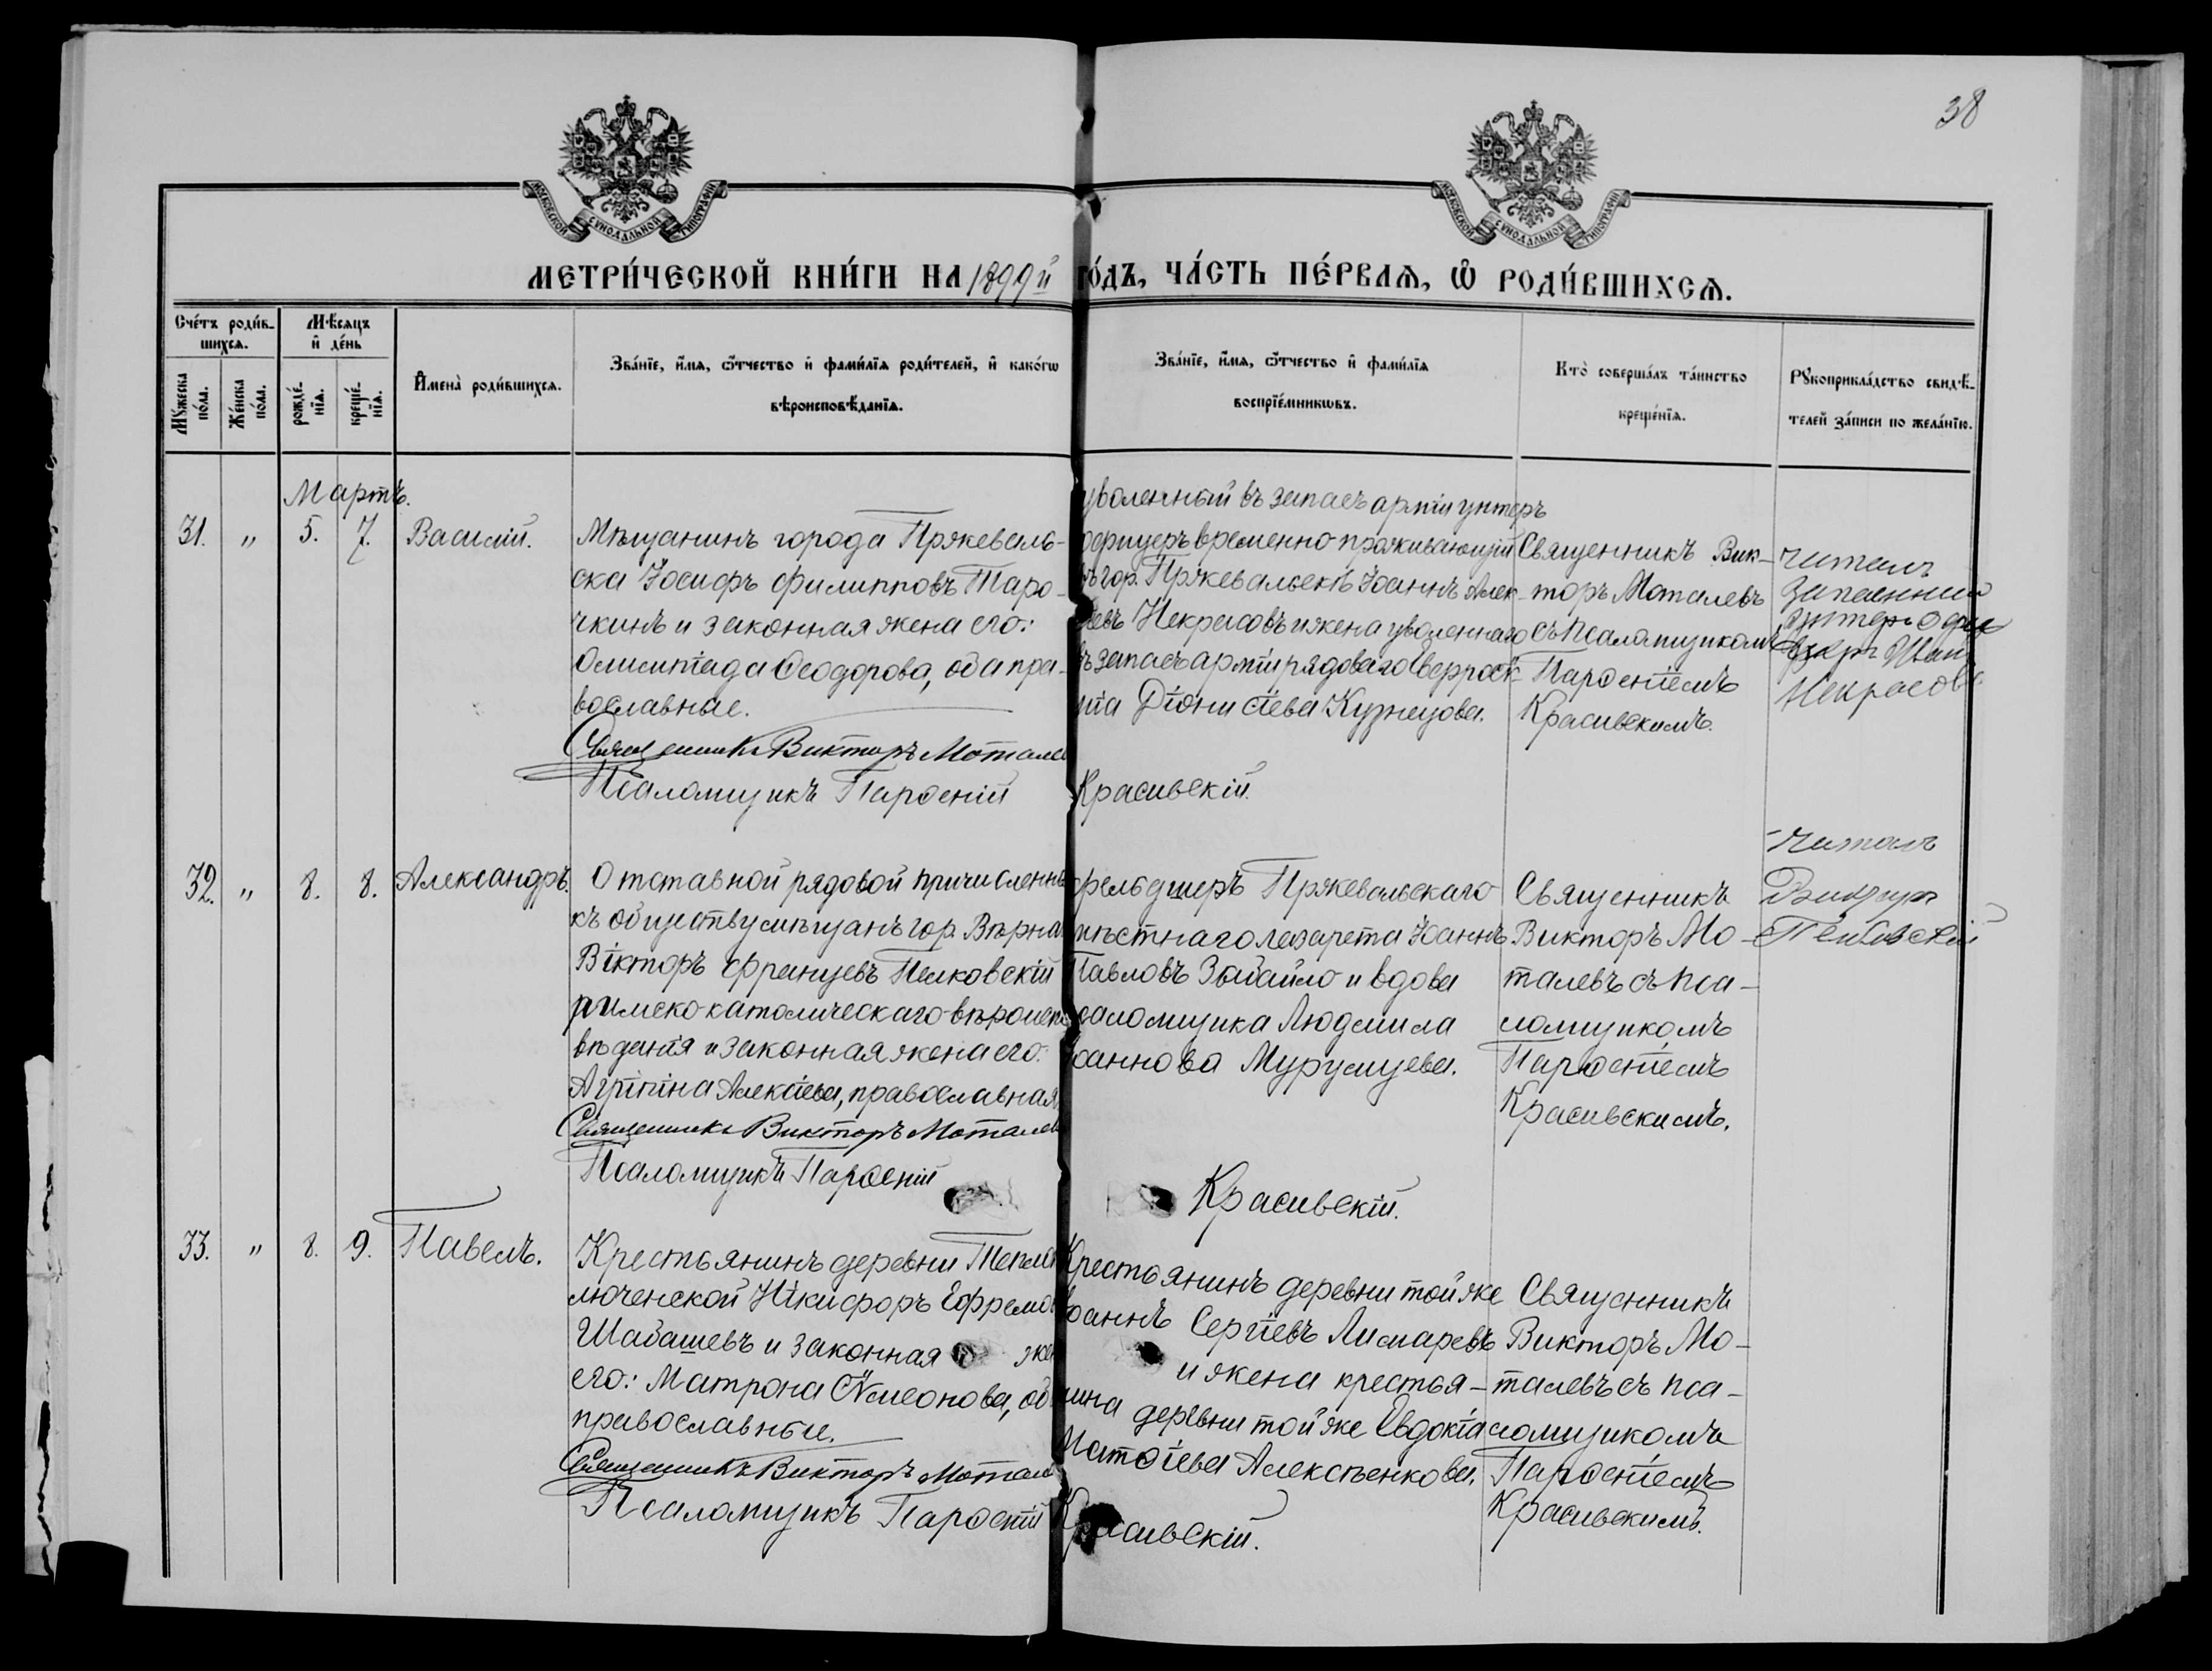 38
МОСКОВСКОЙ СѴНОДАЛЬНОЙ ТИПОГРАФІИ
МОСКОВСКОЙ СѴНОДАЛЬНОЙ ТИПОГРАФІИ
МЕТРИ́ЧЕСКОЙ КНИ́ГИ НА 1899й ГО́ДЪ, ЧА́СТЬ ПЕ́РВАѦ, Ѡ РОДИ́ВШИХСѦ.
Сче́тъ роди́в-
шихсѧ.
Мꙋжеска
по́ла.
Же́нска
по́ла.
Мѣ́сѧцъ
и҆ де́нь
рожде́-
нїѧ.
креще́-
нїѧ.
И҆мена̀ роди́вшихсѧ.
Зва́нїе, и҆́мѧ, ѻ҆́тчество и҆ фами́лїѧ роди́телей, и҆ како́гѡ
вѣроисповѣ́данїѧ.
Зва́нїе, и҆́мѧ, ѻ҆́тчество и҆ фами́лїѧ
воспрїе́мникѡвъ.
Кто̀ соверша́лъ та́инство
креще́нїѧ.
Рꙋкоприкла́дство свидѣ́-
телей за́писи по жела́нїю.
Мартъ.
31. " 5. 7. Василій.
Мѣщанинъ города Пржеваль-
ска Іосифъ Филипповъ Таро-
чкинъ и законная жена его:
Олимпіада Ѳеодорова, оба пра-
вославные.
Священникъ Викторъ Моталев
Псаломщикъ Парѳеній Красивскій.
уволенный въ запасъ арміи унтеръ
офицеръ временно проживающій
въ гор. Пржевальскѣ Іоаннъ Алек-
Некрасовъ и жена уволеннаго
въ запасъ арміи рядоваго
Діонисіева Кузнецова.
Священникъ Вик-
торъ Моталевъ
съ псаломщикомъ
Парѳеніемъ
Красивскимъ.
Читалъ
запасный
унтеръ офи
церъ Иван
Некрасовъ
32. " 8. 8. Александръ.
Отставной рядовой причисленн
къ обществу мѣщанъ гор. Вѣрна
Вікторъ Францевъ Пелковскій
римско-католическаго вѣроиспо
вѣданія и законная жена его:
Агріпіна Алексіева, православная
Священникъ Викторъ Моталев
Псаломщикъ Парѳеній Красивскій.
фельдшеръ Пржевальскаго
мѣстнаго лазарета Іоаннъ
Павловъ Забайло и вдова
псаломщика Людмила
Іоаннова Мурумцева.
Священникъ
Викторъ Мо-
талевъ съ пса-
ломщикомъ
Парѳеніемъ
Красивскимъ.
Читалъ
33. " 8. 9. Павелъ.
Крестьянинъ деревни Тепло
люченской Никифоръ Ефремов
Шабашевъ и законная жен
его: Матрона Сѵмеонова, об
православные.
Священникъ Викторъ Моталев
Псаломщикъ Парѳеній Красивскій.
Крестьянинъ деревни той же
Іоаннъ Сергіевъ Лимаревъ
и жена крестья-
нина деревни той же Евдокіа
Матѳіева Алексѣенкова.
Священникъ
Викторъ Мо-
талевъ съ пса-
ломщикомъ
Парѳеніемъ
Красивскимъ.